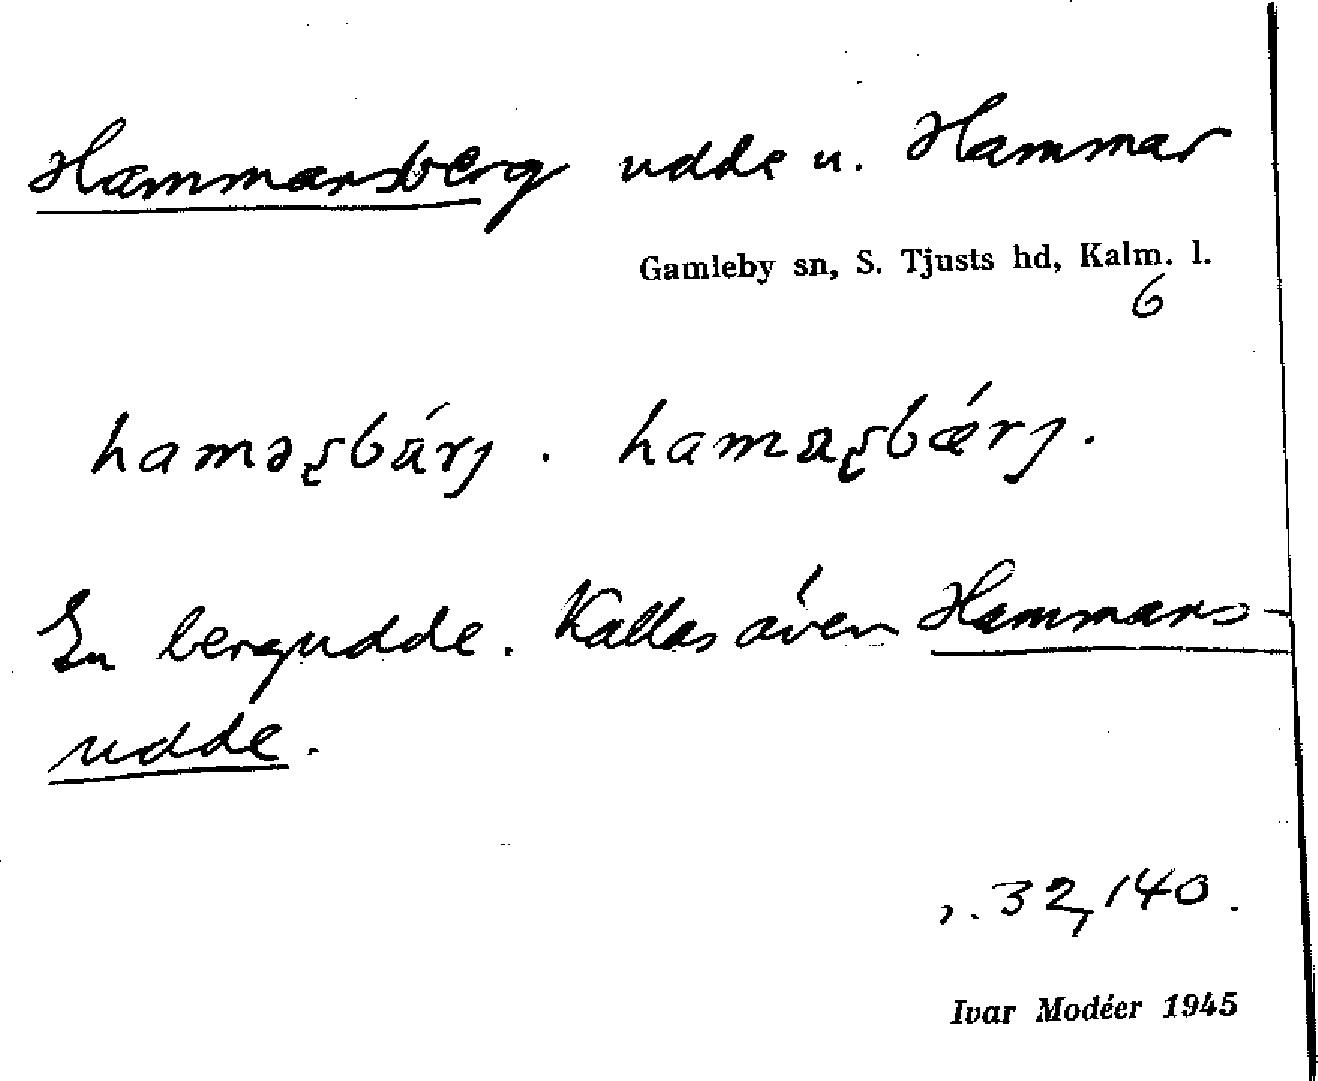 Hammarsberg udde u. Hammar
Gamleby sn, S. Tjusts hd, Kalm. l.
6
haməʂbárj . hamaʂbǽrj.
En bergudde. Kallas även Hammars-
udde.
s. 32, 140.
Ivar Modéer 1945